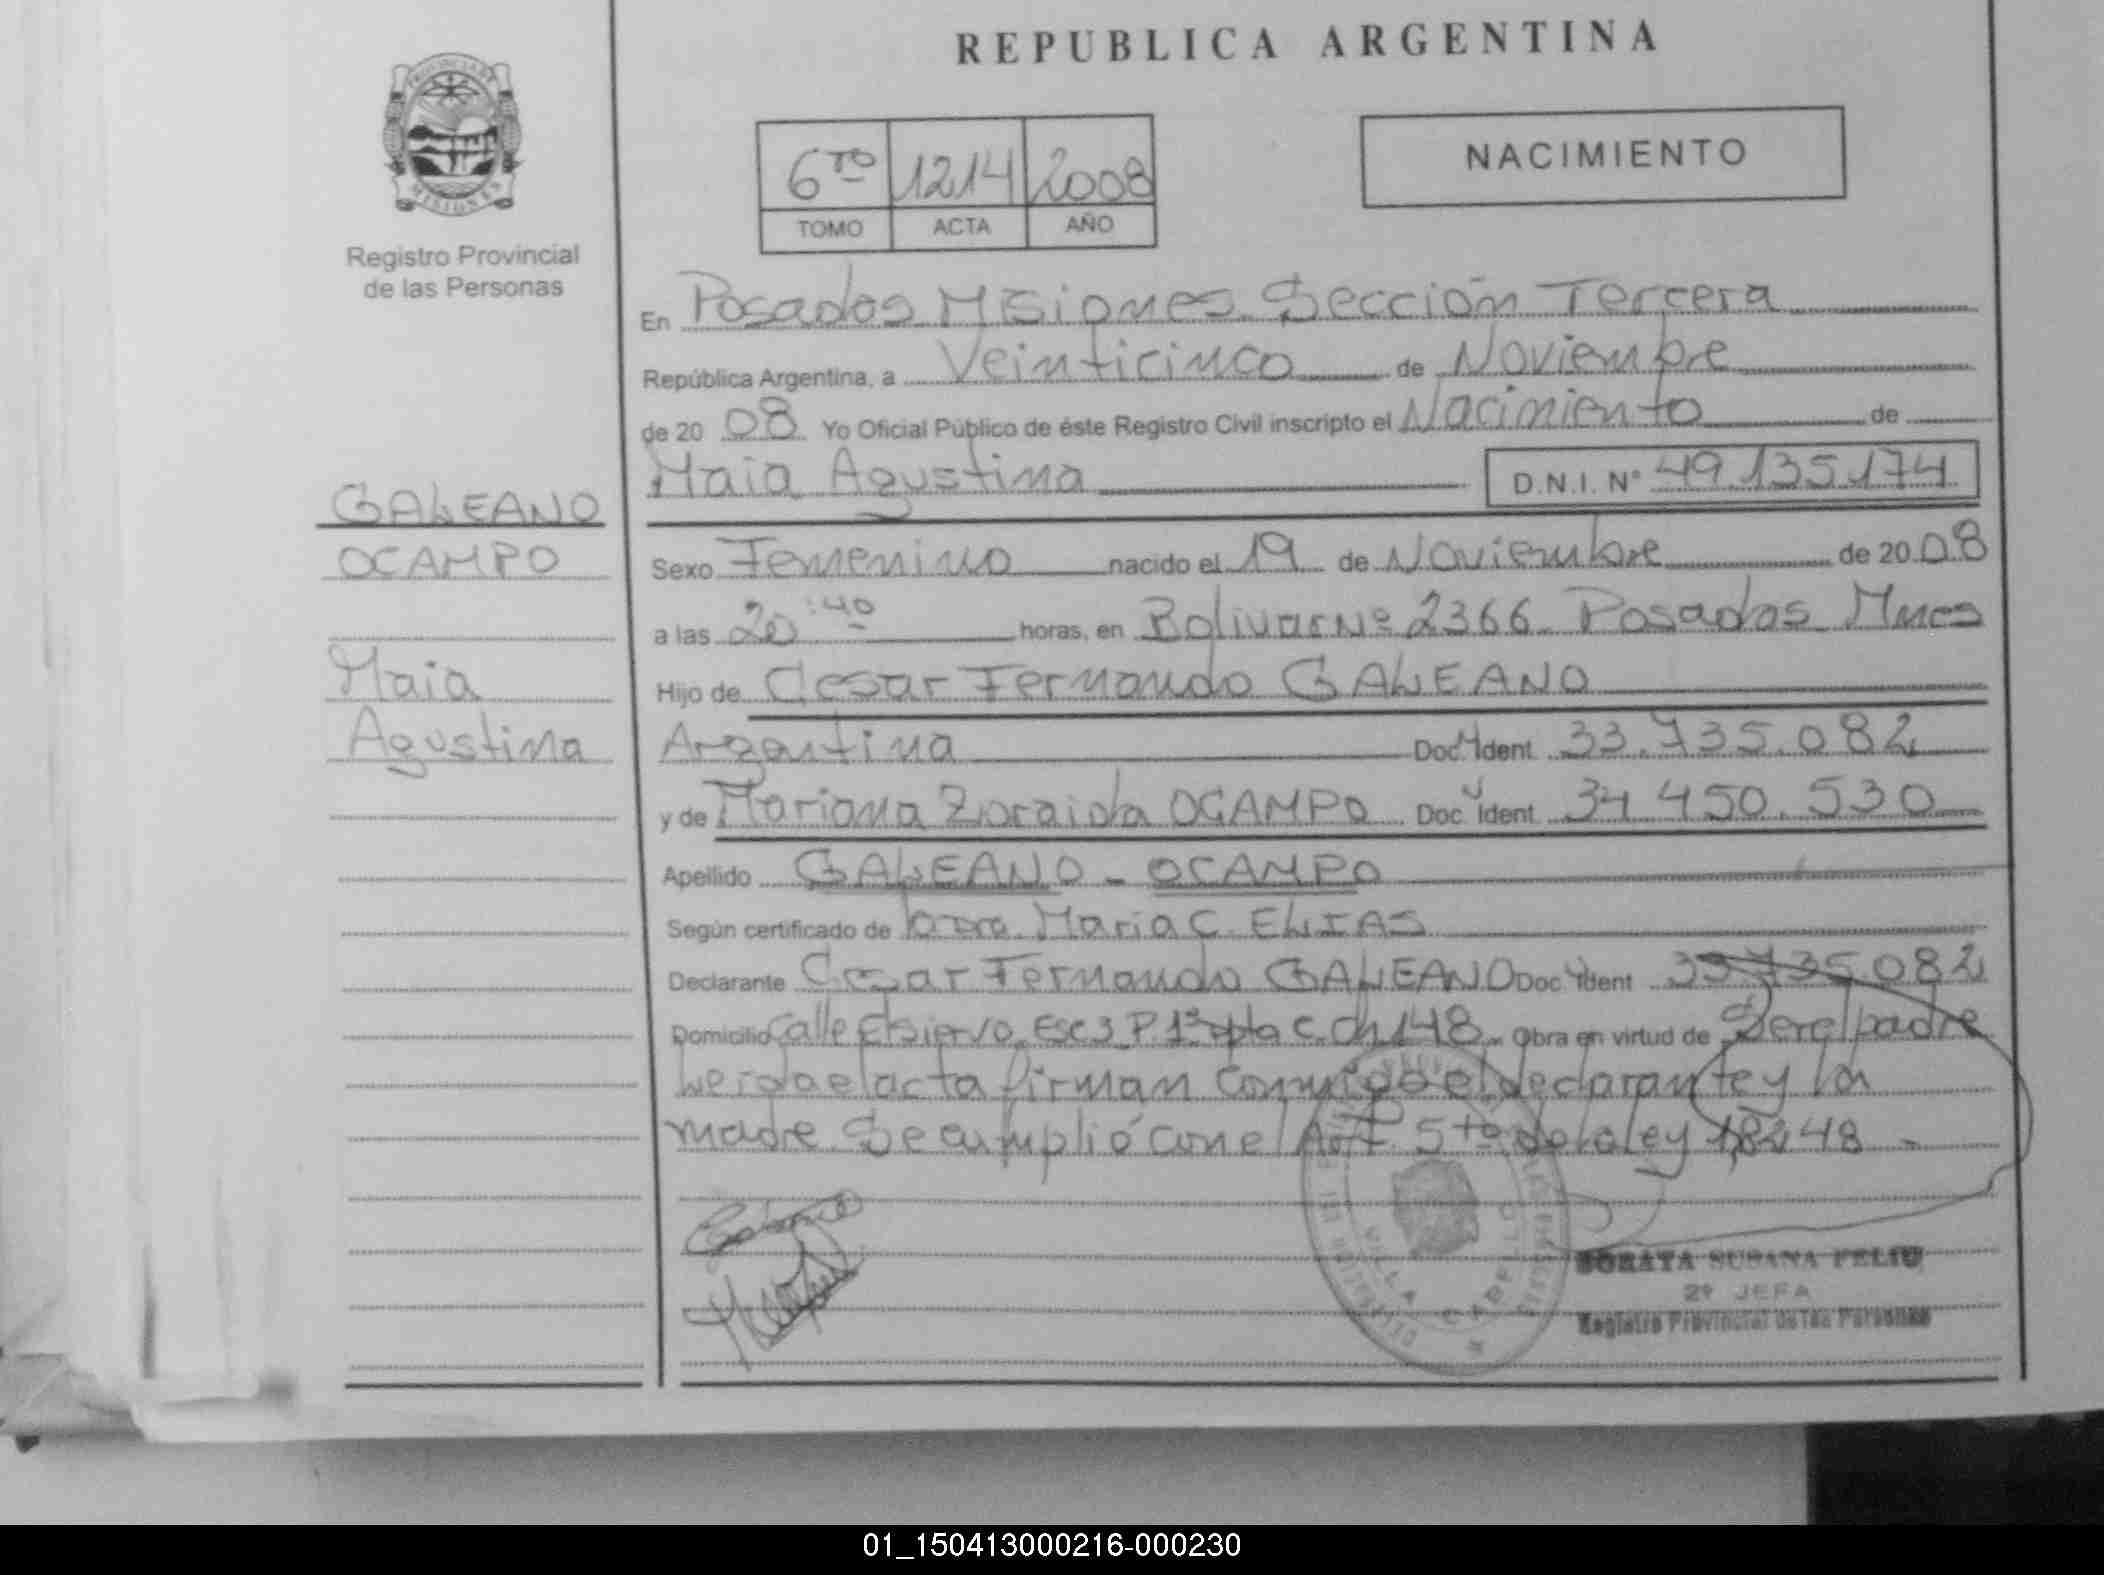 REPUBLICA ARGENTINA
PROVINCIA DE
MISIONES
Registro Provincial
de las Personas
6TO 1214 2008
TOMO ACTA AÑO
NACIMIENTO
En Posadas Misiones Sección Tercera
República Argentina, a Veinticinco de Noviembre
de 20 08 Yo Oficial Público de éste Registro Civil inscripto el Nacimiento de
Maia Agustina D.N.I. Nº 49.135.174
GALEANO
OCAMPO
Maia
Agustina
Sexo Femenino nacido el 19 de Noviembre de 20 08
a las 20:40 horas, en Bolivar Nº 2366 Posadas Mnes
Hijo de Cesar Fernando GALEANO
Argentina Doc. Ident 33.735.082
y de Mariana Zoraida OCAMPO Doc Ident 34 450.530
Apellido GALEANO - OCAMPO
Según certificado de Maria C. ELIAS
Declarante Cesar Fernando GALEANO Doc Ident 33 735.082
Domicilio Calle Esc 3 P. 1º C. Ch 148 Obra en virtud de Ser el padre
Leida el acta firman conmigo el declarante y la
madre Se cumplió con el Art 5to de la ley 18248
VILLA CABELLO
SORAYA SUSANA FELIU
2º JEFA
Registro Provincial de las Personas
01_150413000216-000230